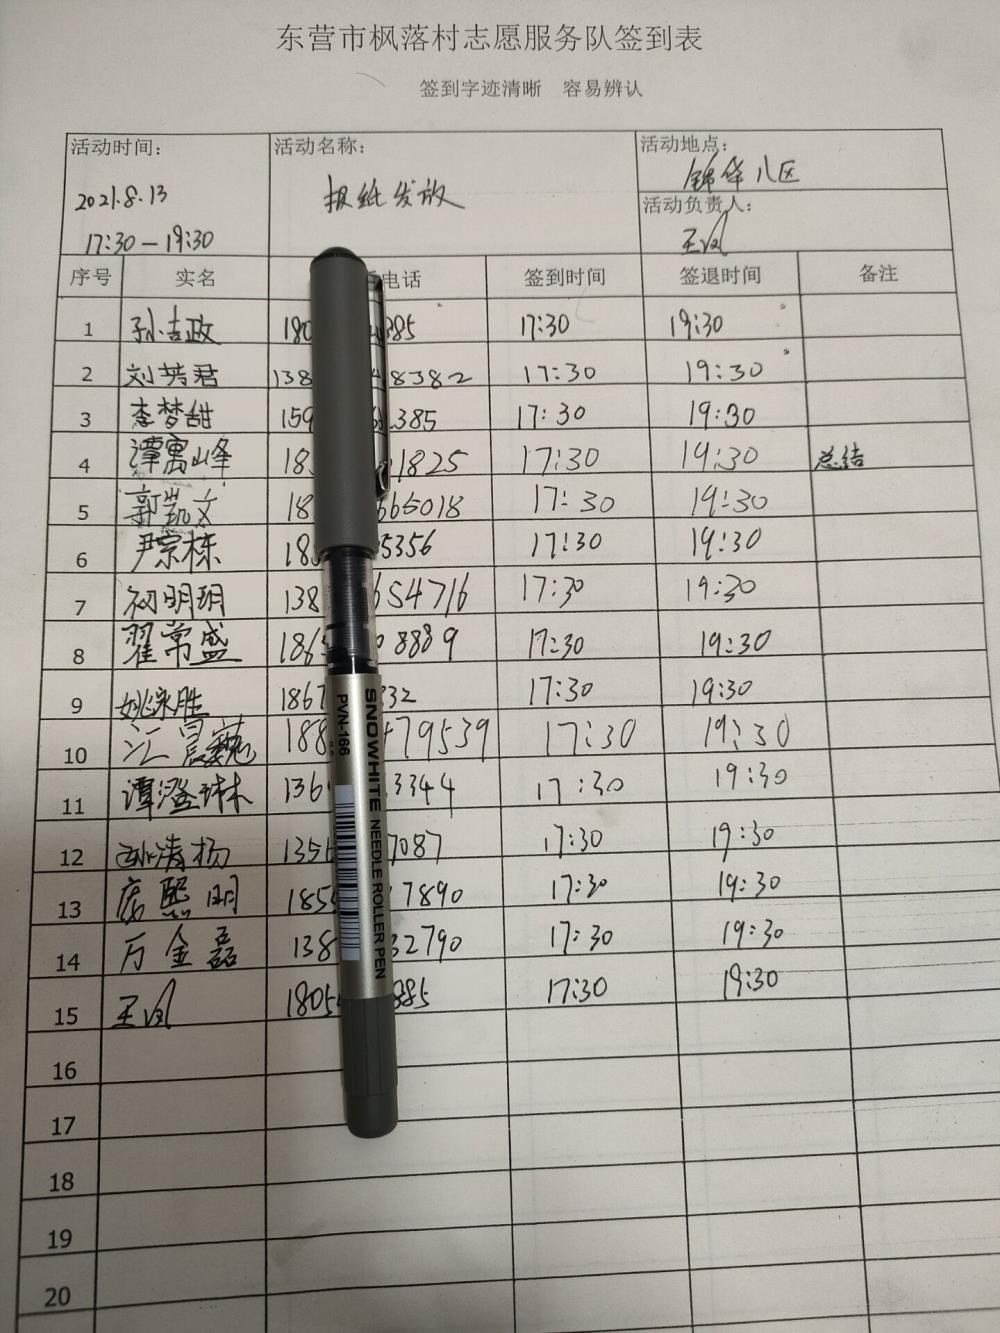 东营市枫落村志愿服务队签到表
签到字迹清晰 容易辨认
活动时间: 活动名称: 活动地点:
2021.8.13 报纸发放 锦华八区
17:30-19:30 活动负责人:
王凤
序号 实名 电话 签到时间 签退时间 备注
1 孙吉政 180 385 17:30 19:30
2 刘芳君 138 8382 17:30 19:30
3 李梦甜 159 385 17:30 19:30
4 谭寓峰 18 1825 17:30 19:30 总结
5 凯文 18 665018 17:30 19:30
6 尹宗栋 18 5356 17:30 19:30
7 初明玥 138 654716 17:30 19:30
8 翟常盛 186 8889 17:30 19:30
9 姚泳胜 1867 332 17:30 19:30
10 汇晨 188 479539 17:30 19:30
11 谭澄琳 136 3344 17:30 19:30
12 孙清杨 1356 7087 17:30 19:30
13 熙明 185 7890 17:30 19:30
14 万金磊 138 32790 17:30 19:30
15 王凤 1805 385 17:30 19:30
16
17
18
19
20
SNOWHITE NEEDLE ROLLER PEN
PVN-166